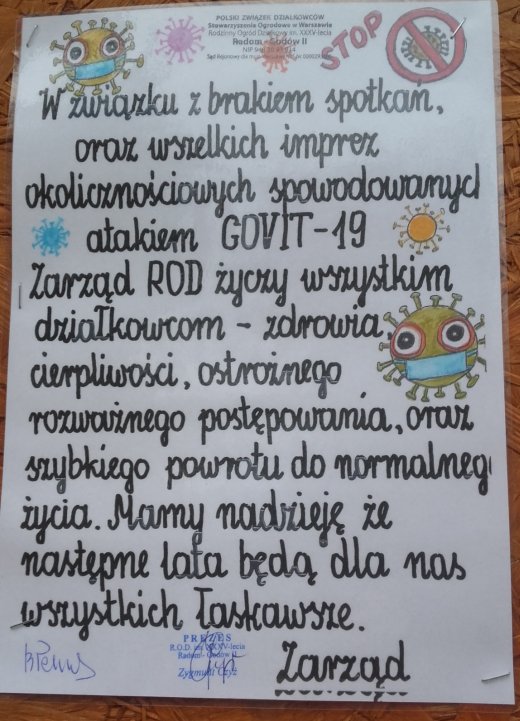 POLSKI ZWIĄZEK DZIAŁKOWCÓW
Stowarzyszenie Ogrodowe w Warszawie
Rodzinny Ogród Działkowy im. XXXV-lecia
Radom - Godów II
STOP
W związku z brakiem spotkań,
oraz wszelkich imprez
okolicznościowych spowodowanych
atakiem GOVIT-19
Zarząd ROD życzy wszystkim
działkowcom - zdrowia,
cierpliwości, ostrożnego
rozważnego postępowania, oraz
szybkiego powrotu do normalneg
życia. Mamy nadzieję że
następne lata będą dla nas
wszystkich łaskawsze.
PREZES
R.O.D. im. XXXV-lecia
Radom - Godów II
Zygmunt Czyż
Zarząd